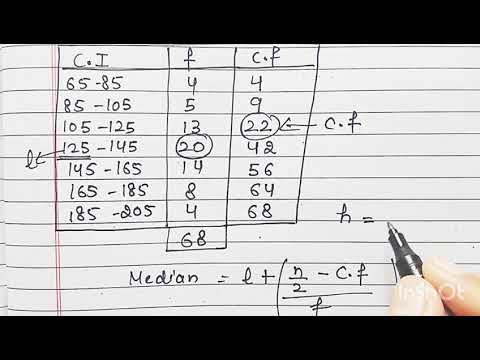 C.I f C.f
65-85 4 4
85-105 5 9
105-125 13 22 ← C.f
l ← 125-145 20 42
145-165 14 56
165-185 8 64
185-205 4 68
68
h =
Median = l + ( n/2 - C.f / f
InShOt